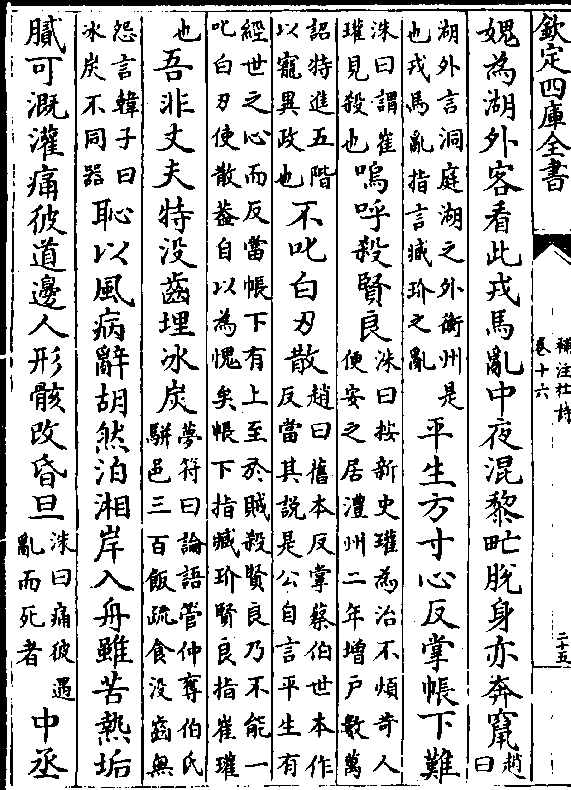 欽定四庫全書
補注杜詩
卷十六
二十五
媿為湖外客看此戎馬亂中夜混黎甿脫身亦奔竄
趙曰
湖外言洞庭湖之外衡州是
也戎馬亂指言臧玠之亂
平生方寸心反掌帳下難
洙曰謂崔
瓘見殺也
嗚呼殺賢良
洙曰按新史瓘為治不煩苛人
便安之居澧州二年增戶數萬
詔特進五階
以寵異政也
不叱白刃散
趙曰舊本反掌蔡伯世本作
反當其說是公自言平生有
經世之心而反當帳下有上至於賊殺賢良乃不能一
叱白刃使散蓋自以為愧矣帳下指臧玠賢良指崔瓘
也
吾非丈夫特沒齒埋冰炭
夢符曰論語管仲奪伯氏
駢邑三百飯疏食沒齒無
怨言韓子曰
冰炭不同器
恥以風病辭胡然泊湘岸入舟雖苦熱垢
膩可溉灌痛彼道邊人形骸改昏旦
洙曰痛彼遇
亂而死者
中丞